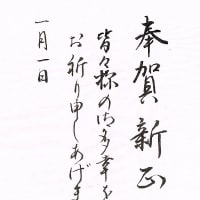 奉賀新正
皆々様の御多幸を
お祈り申しあげま
一月一日